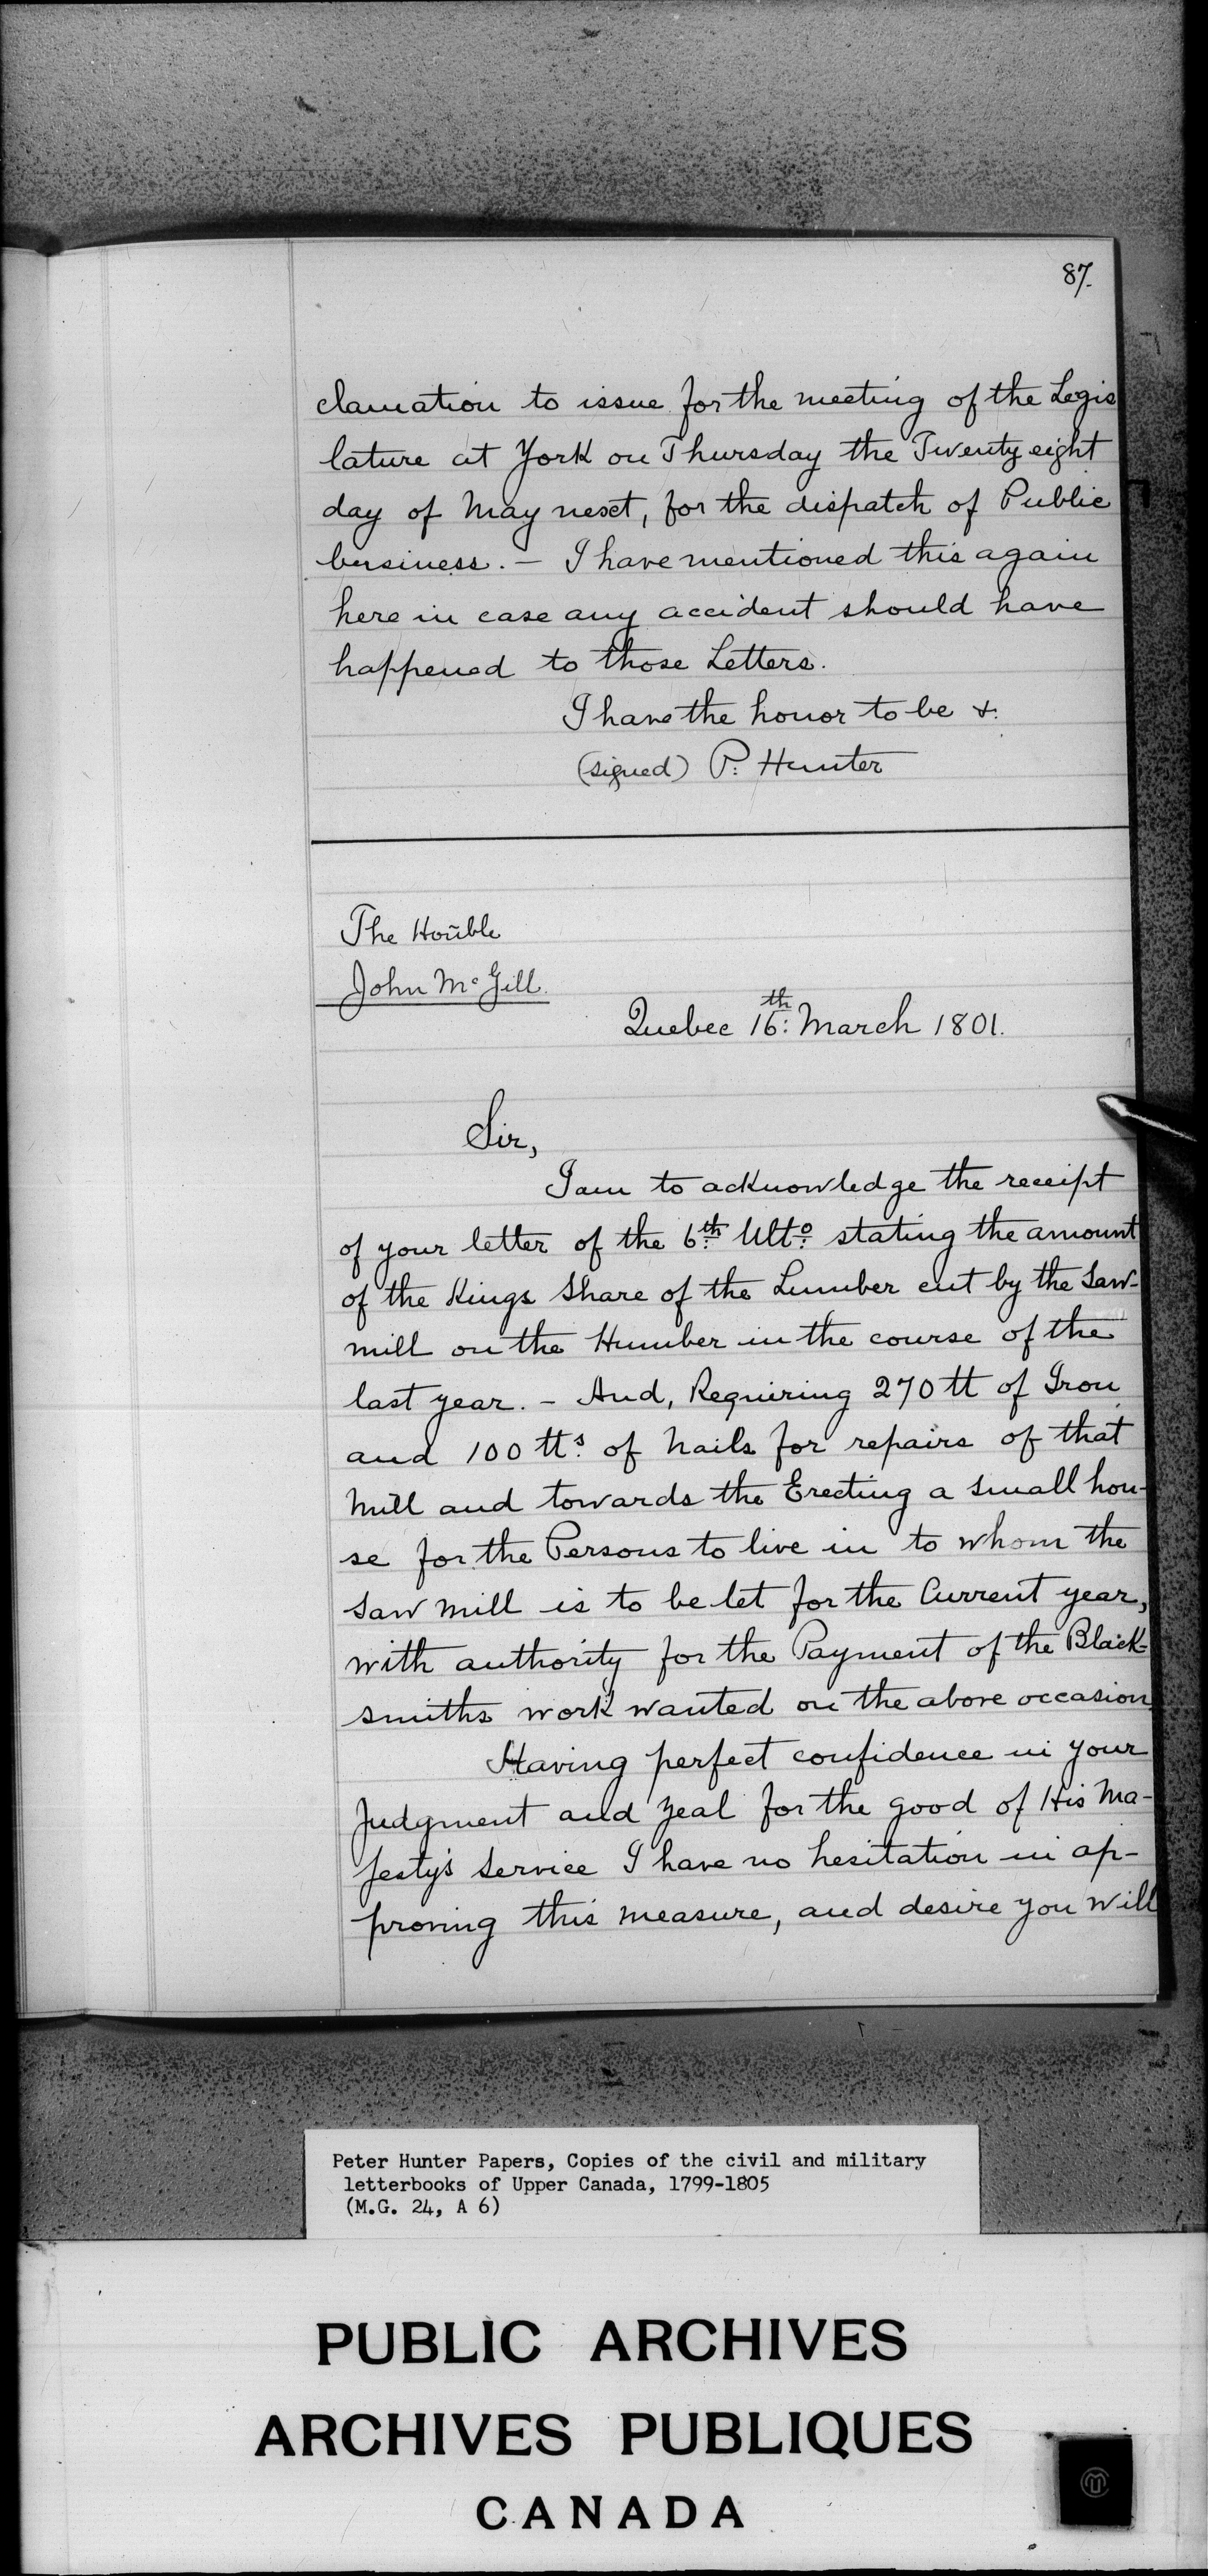 87.
clamation to issue for the meeting of the Legis
lature at York on Thursday the Twenty eight
day of May next, for the dispatch of Public
business. — I have mentioned this again
here in case any accident should have
happened to those Letters.
I have the honor to be &.
(signed) P. Hunter
The Hoñble
John McGill.
Quebec 16th: March 1801.
Sir,
I am to acknowledge the receipt
of your letter of the 6th Ulto. stating the amount
of the Kings Share of the Lumber cut by the Saw-
mill on the Humber in the course of the
last year. - And, Requiring 270 tt of Iron
and 100 tts. of Nails for repairs of that
Mill and towards the Erecting a small hou-
se for the Persons to live in to whom the
Saw Mill is to be let for the Current year,
with authority for the Payment of the Black-
smiths work wanted on the above occasion.
Having perfect confidence in your
Judgment and zeal for the good of His Ma-
jesty's Service I have no hesitation in ap-
proving this measure, and desire you will
Peter Hunter Papers, Copies of the civil and military
letterbooks of Upper Canada, 1799-1805
(M.G. 24, A 6)
PUBLIC ARCHIVES
ARCHIVES PUBLIQUES
CANADA